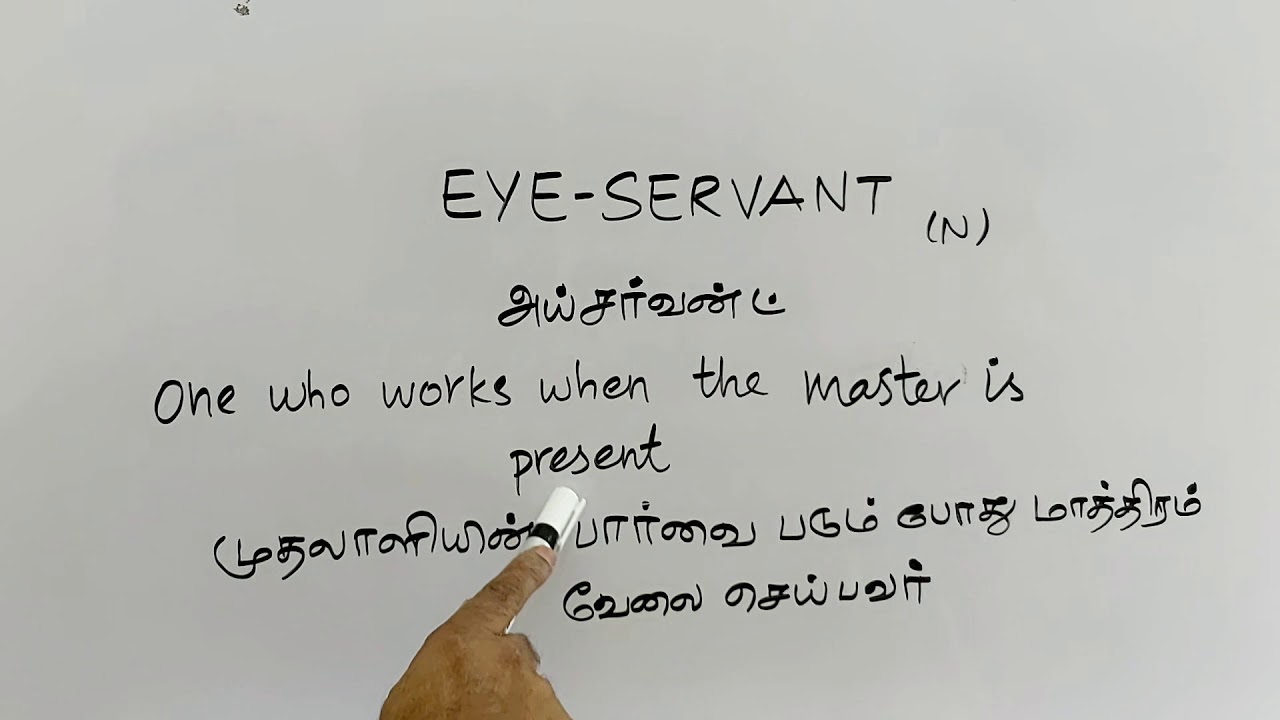 EYE-SERVANT (N)
அய்சர்வண்ட்
One who works when the master is
present
முதலாளியின் பார்வை படும் போது மாத்திரம்
வேலை செய்பவர்